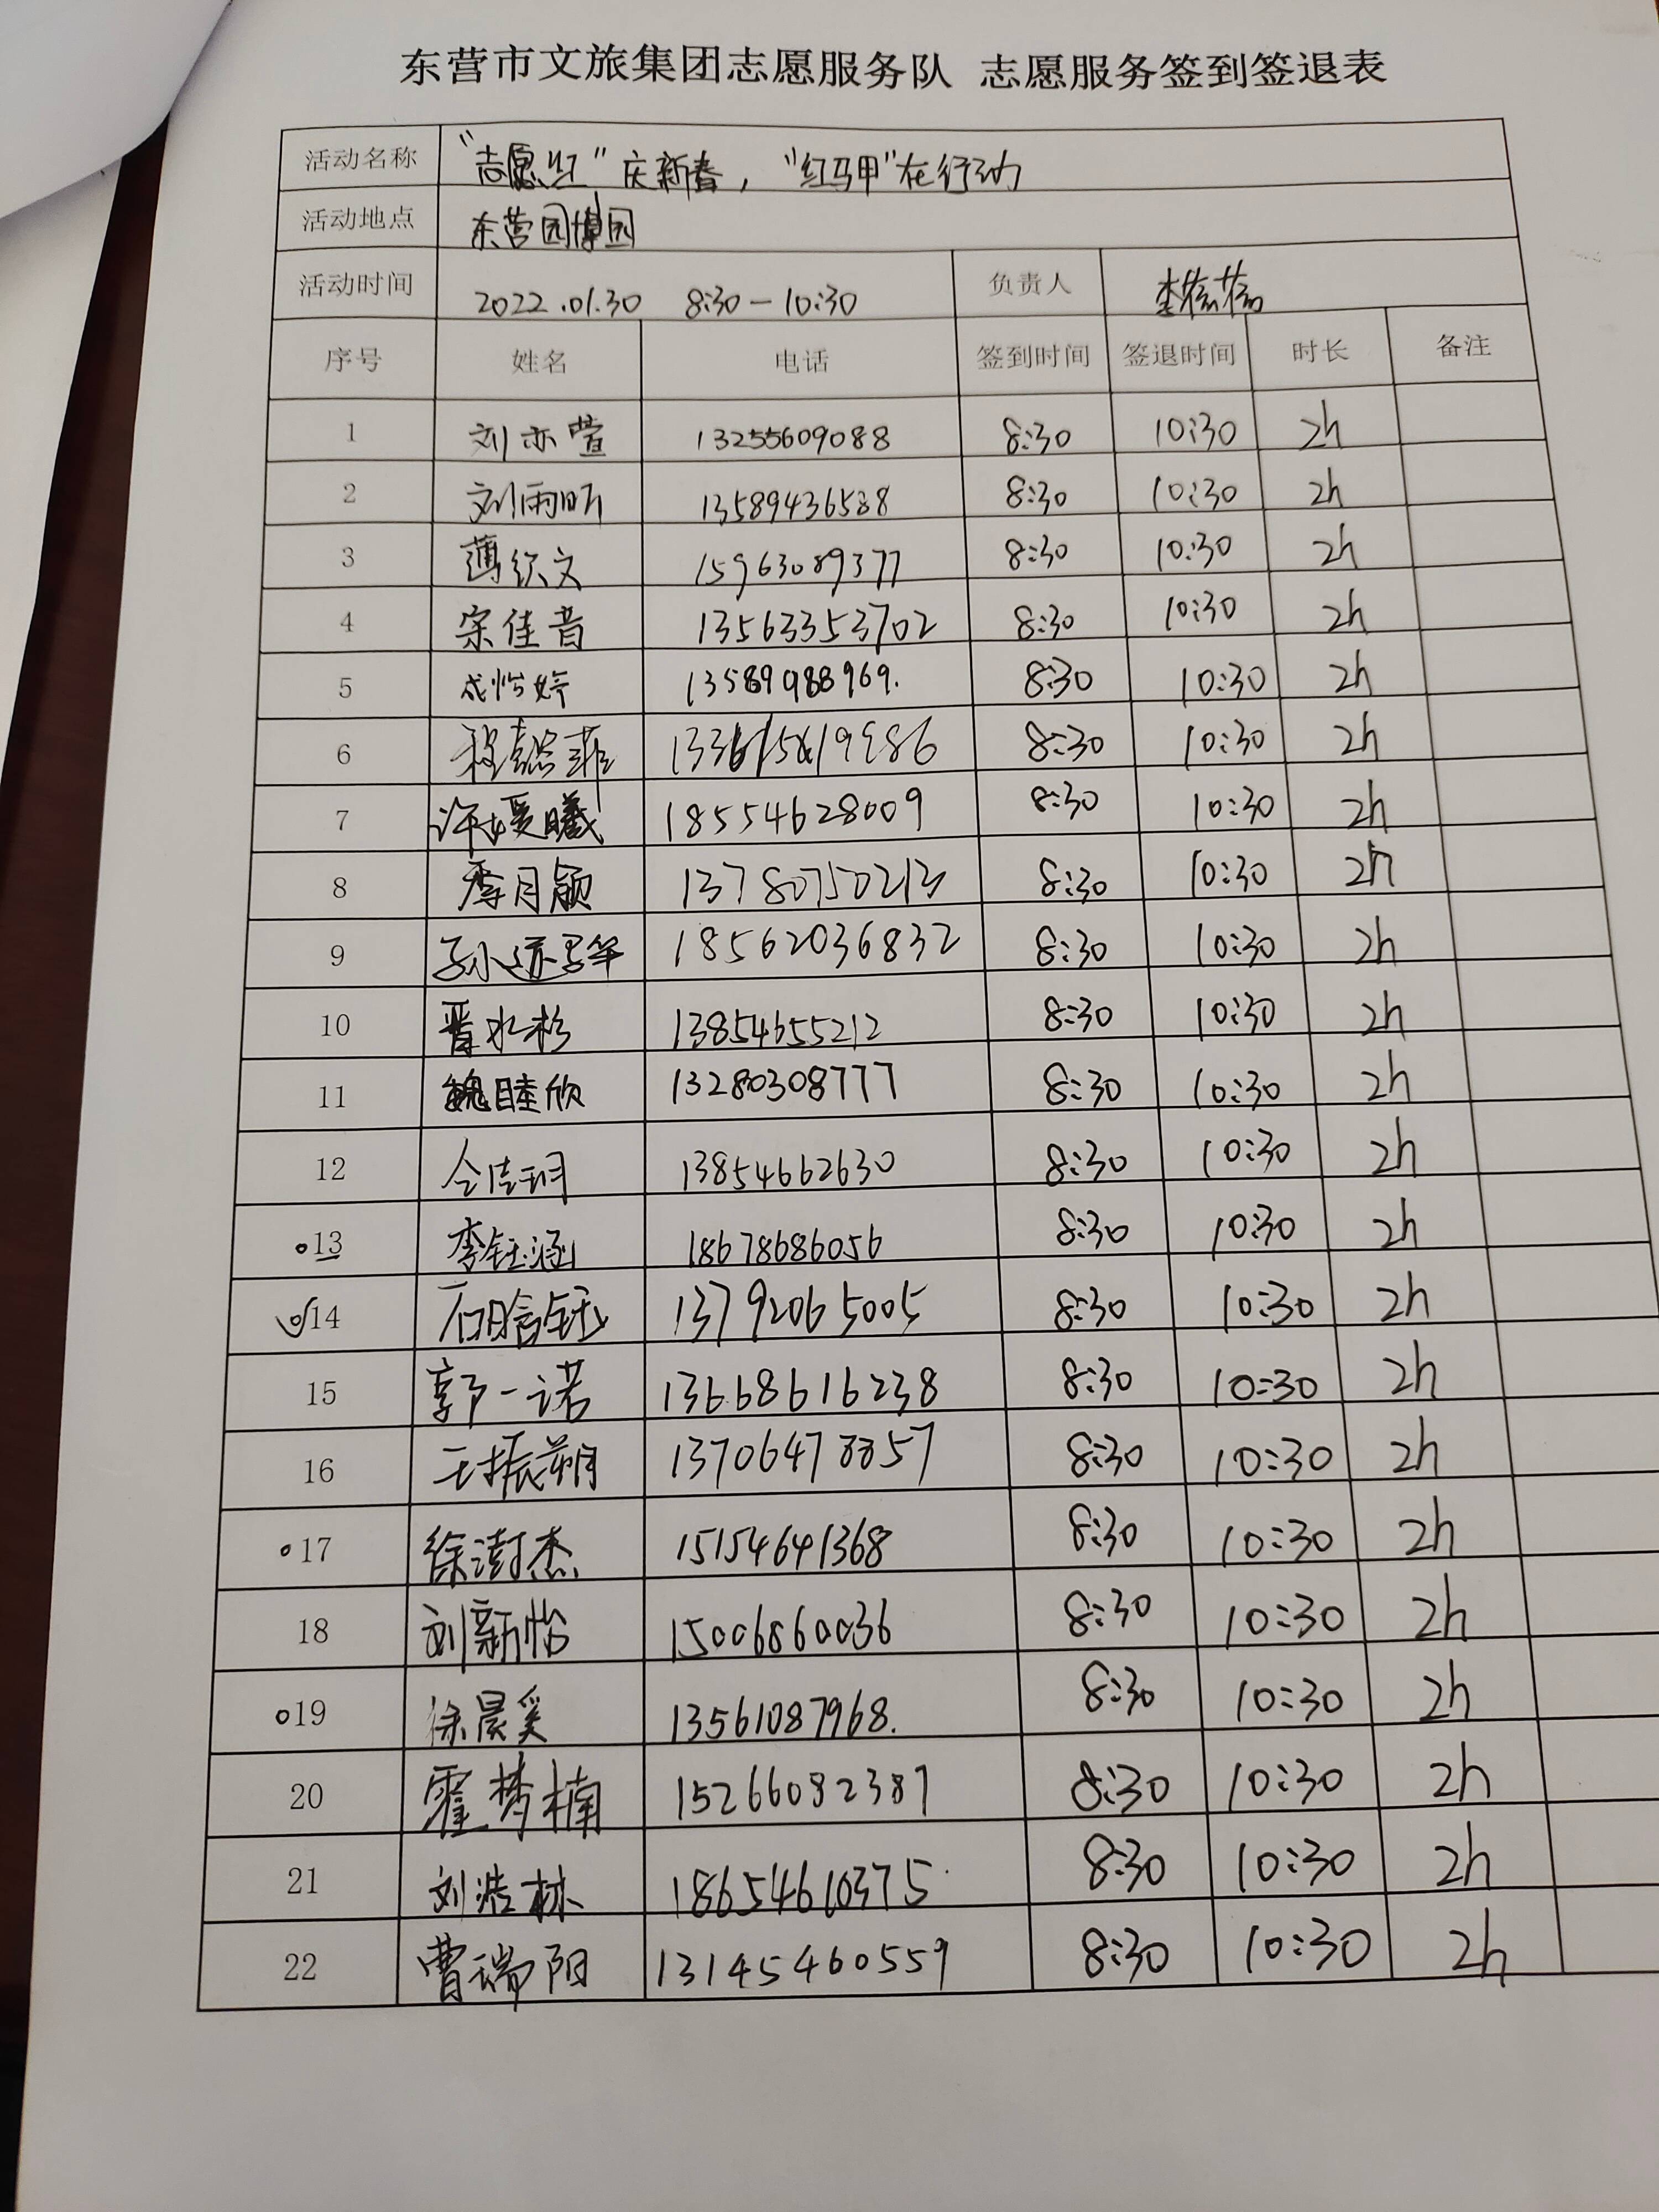 东营市文旅集团志愿服务队 志愿服务签到签退表
活动名称 “志愿红”庆新春，“红马甲”在行动
活动地点 东营园博园
活动时间 2022.01.30 8:30—10:30 负责人
序号 姓名 电话 签到时间 签退时间 时长 备注
1 刘亦萱 13255609088 8:30 10:30 2h
2 刘雨昕 13589436588 8:30 10:30 2h
3 薄纹文 15963089377 8:30 10:30 2h
4 宋佳音 13563353702 8:30 10:30 2h
5 成怡婷 13589988969. 8:30 10:30 2h
6 8:30 10:30 2h
7 许媛曦 18554628009 8:30 10:30 2h
8 李月颖 13780750213 8:30 10:30 2h
9 18562036832 8:30 10:30 2h
10 晋水杉 13854655212 8:30 10:30 2h
11 魏睦欣 13280308777 8:30 10:30 2h
12 13854662630 8:30 10:30 2h
13 李钰涵 18678686056 8:30 10:30 2h
14 石晗钰 13792065005 8:30 10:30 2h
15 郭一诺 13668616238 8:30 10:30 2h
16 王振朔 13706478857 8:30 10:30 2h
17 徐澍杰 15154641368 8:30 10:30 2h
18 刘新怡 15006860036 8:30 10:30 2h
19 徐晨奚 13561087968. 8:30 10:30 2h
20 霍梦楠 15266082387 8:30 10:30 2h
21 刘浩林 18654610375 8:30 10:30 2h
22 曹瑞阳 13145460559 8:30 10:30 2h